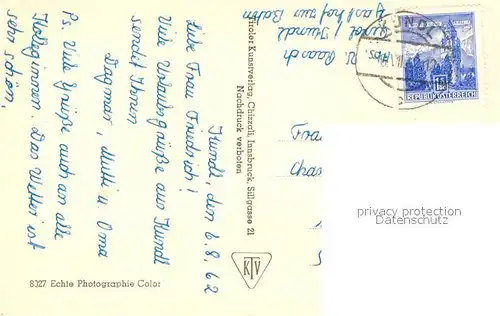 Kundl, den 6.8.62
Liebe Frau Friedrich!
Viele Urlaubsgrüße aus Kundl
sendet Ihnen
Dagmar, Mutti u. Oma
Ps. Viele Grüße auch an alle
Kolleginnen. Das Wetter ist
sehr schön.
Raasch
Tirol / Kundl
Gasthof zur Bahn
Tiroler Kunstverlag, Chizzali, Innsbruck, Sillgasse 21
Nachdruck verboten
KTV
8327 Echte Photographie Color
KUNDL
REPUBLIK ÖSTERREICH
Frau
privacy protection
DSGVO